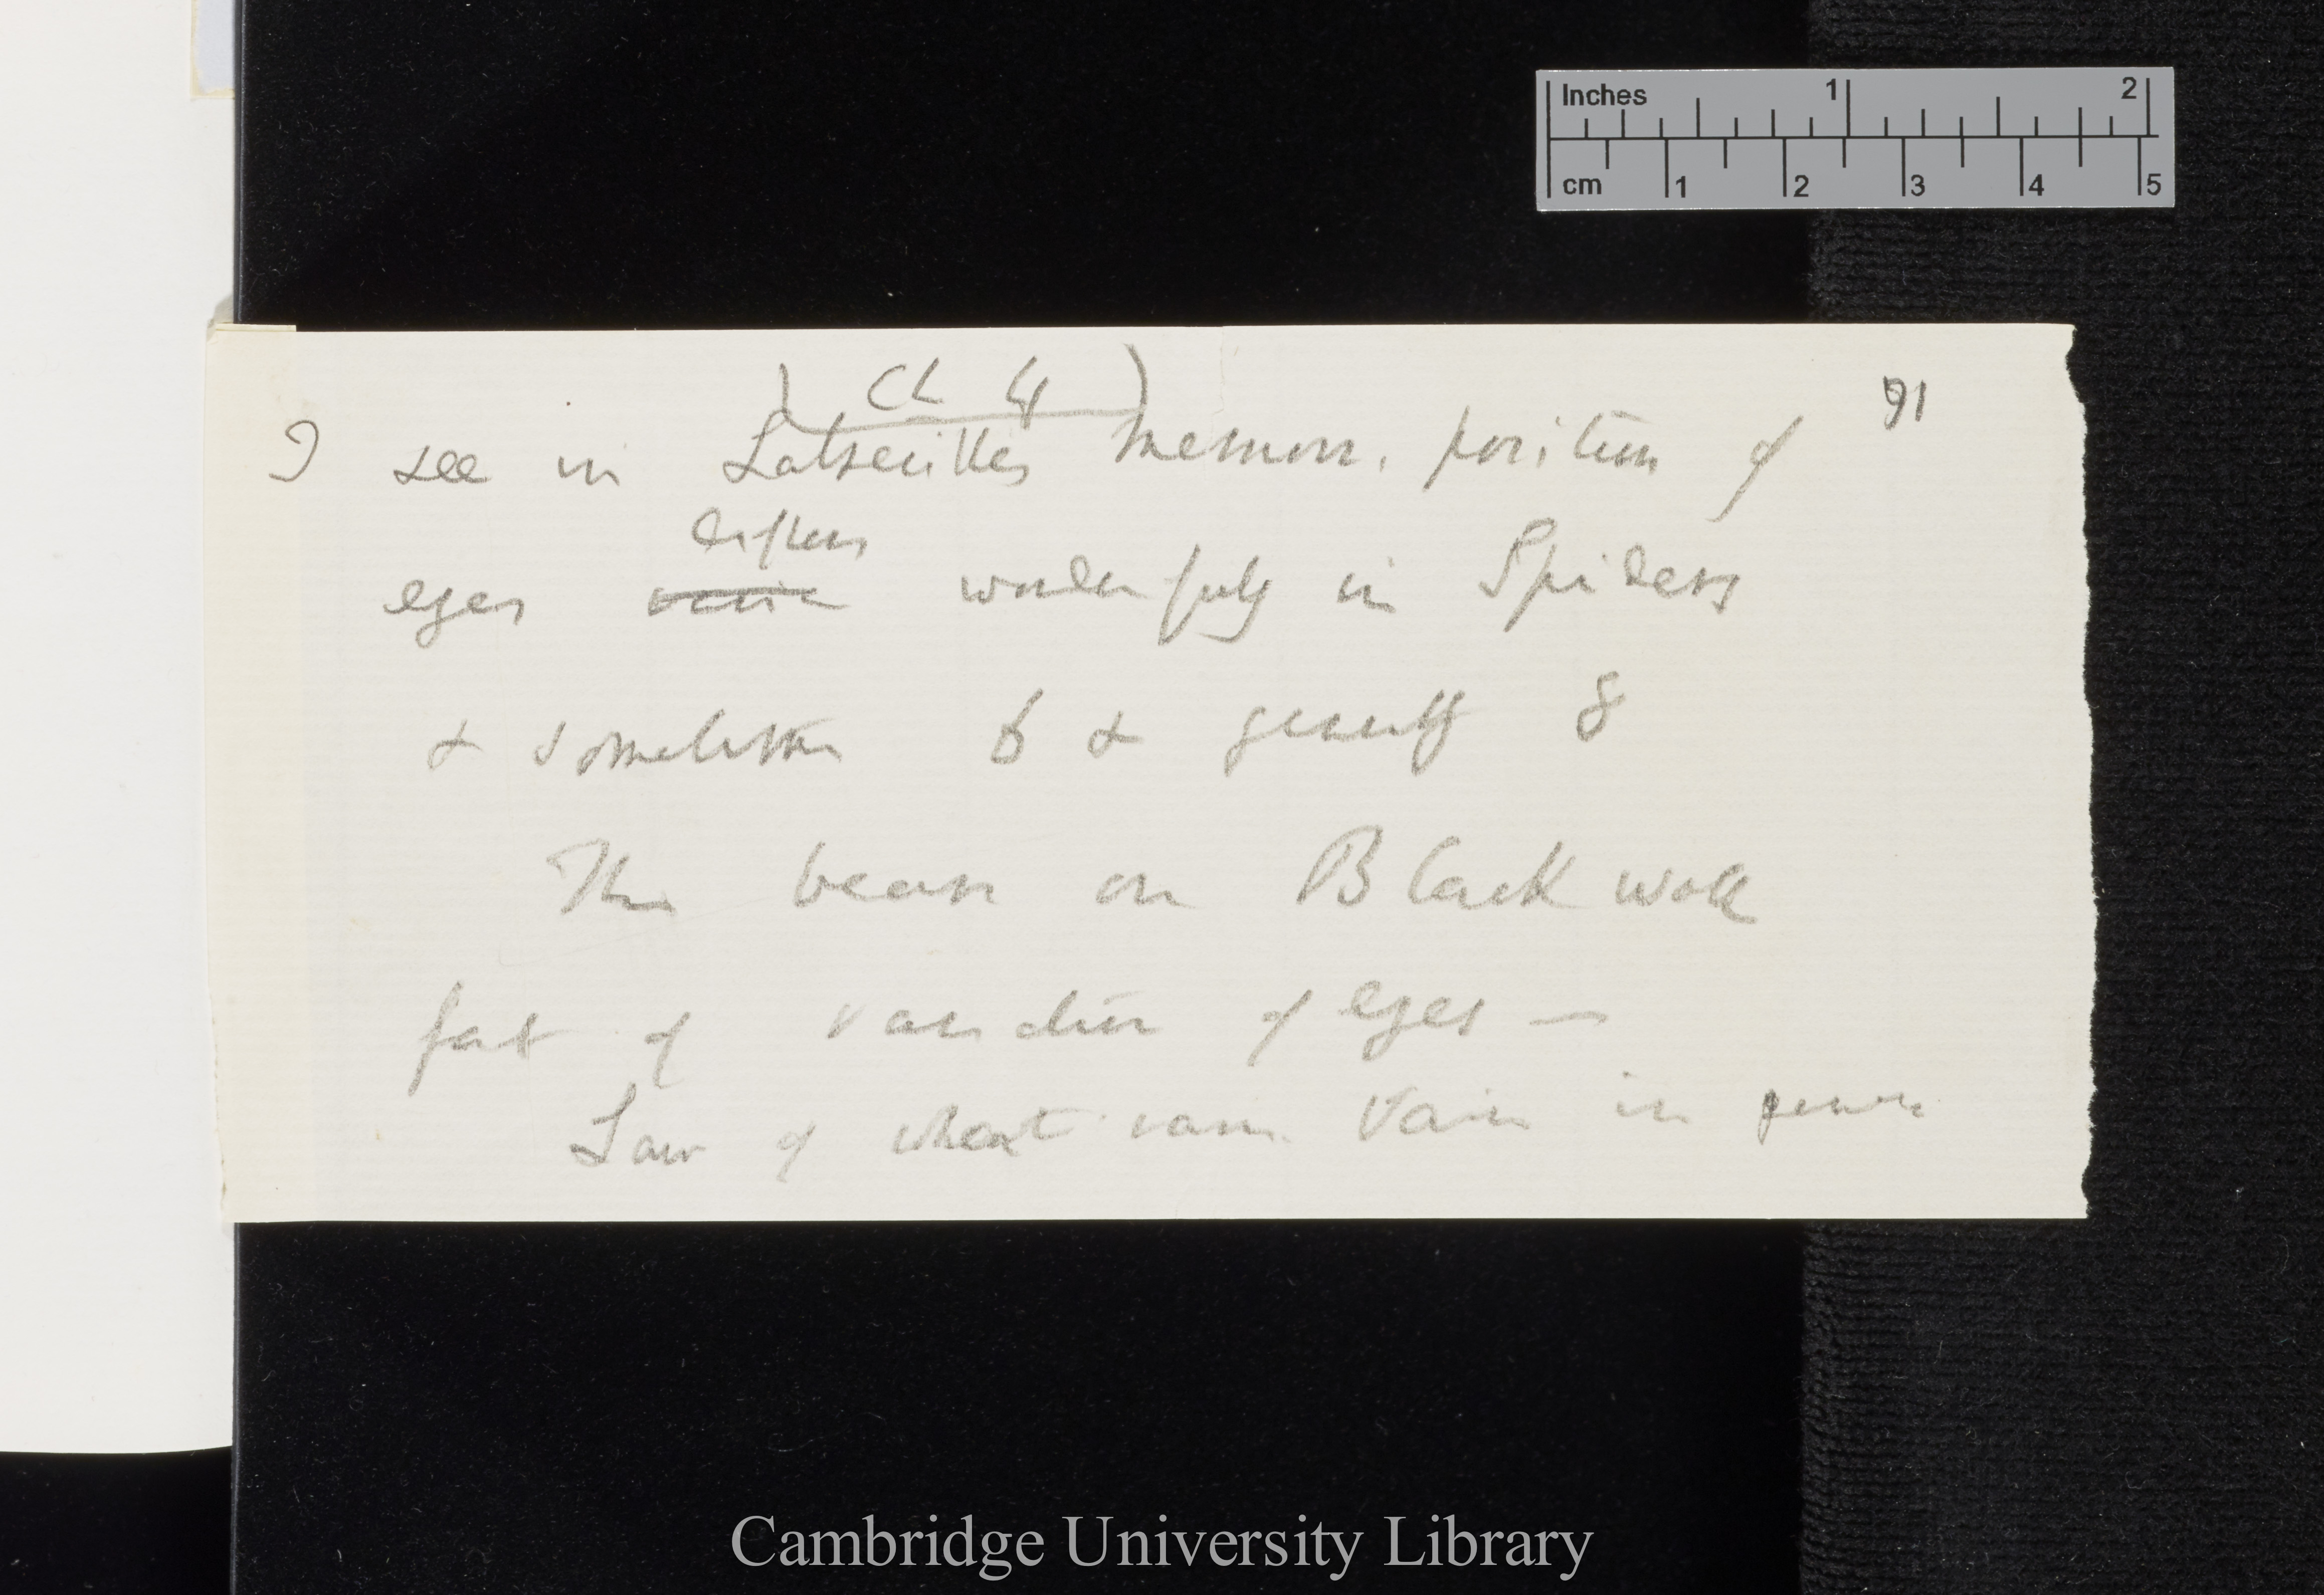 Inches 1 2
cm 1 2 3 4 5
Ch 4
91
I see in Latreilles memoir. position of
differs
eyes varie wonderfully in Spiders
& sometimes 6 & generally 8
This bears on Blackwall
fact of variation of eyes —
Law of what vary. Vary in
Cambridge University Library